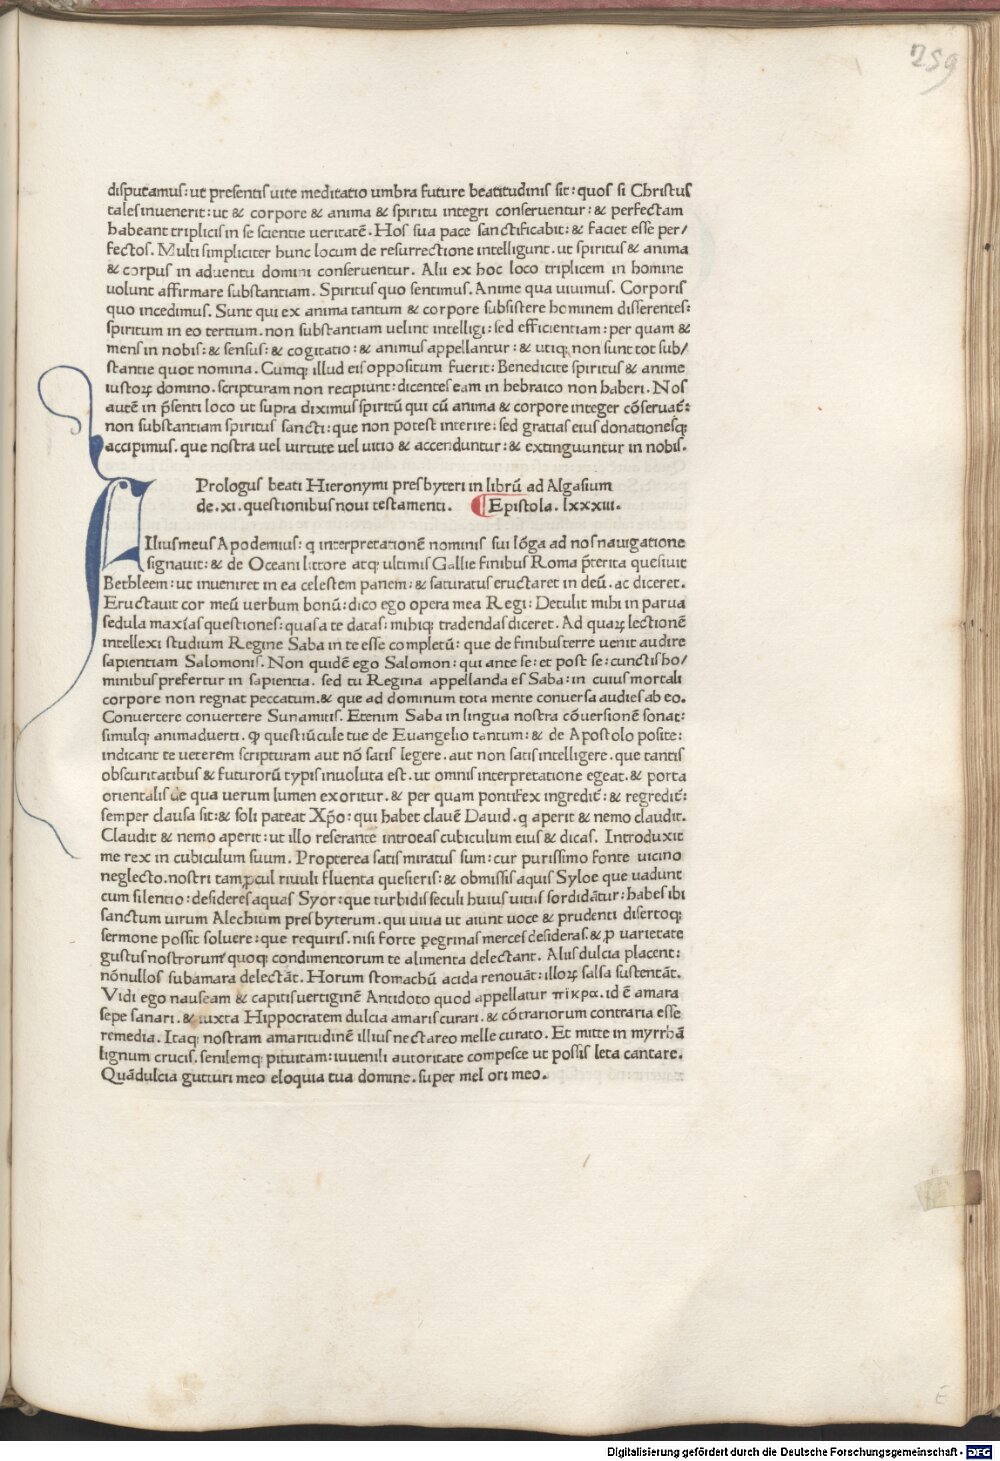 259
disputamus: ut presentis uite meditatio umbra future beatitudinis sit: quos si Christus
tales inuenerit: ut & corpore & anima & spiritu integri conseruentur: & perfectam
habeant triplicis in se scientie ueritatē. Hos sua pace sanctificabit: & faciet esse per/
fectos. Multi simpliciter hunc locum de resurrectione intelligunt. ut spiritus & anima
& corpus in aduentu domini conseruentur. Alii ex hoc loco triplicem in homine
uolunt affirmare substantiam. Spiritus quo sentimus. Anime qua uiuimus. Corporis
quo incedimus. Sunt qui ex anima tantum & corpore subsistere hominem disserentes:
spiritum in eo tertium. non substantiam uelint intelligi: sed efficientiam: per quam &
mens in nobis: & sensus: & cogitatio: & animus appellantur: & utiq; non sunt tot sub/
stantie quot nomina. Cumq; illud eis oppositum fuerit: Benedicite spiritus & anime
iustoꝝ domino. scripturam non recipiunt: dicentes eam in hebraico non haberi. Nos
autē in p̄senti loco ut supra diximus spiritū qui cū anima & corpore integer cōseruat̄:
non substantiam spiritus sancti: que non potest interire: sed gratias eius donationesq;
accipimus. que nostra uel uirtute uel uitio & accenduntur: & extinguuntur in nobis.
Prologus beati Hieronymi presbyteri in librū ad Algasium
de. xi. questionibus noui testamenti. ¶Epistola. lxxxiii.
FIlius meus Apodemius: q interpretationē nominis sui lōga ad nos nauigatione
signauit: & de Oceani littore atq; ultimis Gallie finibus Roma p̄terita quesiuit
Bethleem: ut inueniret in ea celestem panem: & saturatus eructaret in deū. ac diceret.
Eructauit cor meū uerbum bonū: dico ego opera mea Regi: Detulit mihi in parua
sedula maxīas questiones: quas a te datas: mihiq; tradendas diceret. Ad quaꝝ lectionē
intellexi studium Regine Saba in te esse completū: que de finibus terre uenit audire
sapientiam Salomonis. Non quidē ego Salomon: qui ante se: et post se: cunctis ho/
minibus prefertur in sapientia. sed tu Regina appellanda es Saba: in cuius mortali
corpore non regnat peccatum. & que ad dominum tota mente conuersa audies ab eo.
Conuertere conuertere Sunamitis. Etenim Saba in lingua nostra cōuersionē sonat:
simulq; animaduerti. ꝙ questiūcule tue de Euangelio tantum: & de Apostolo posite:
indicant te ueterem scripturam aut nō satis legere. aut non satis intelligere. que tantis
obscuritatibus & futurorū typis inuoluta est. ut omnis interpretatione egeat. & porta
orientalis de qua uerum lumen exoritur. & per quam pontifex ingredit̄: & regredit̄:
semper clausa sit: & soli pateat Xp̄o: qui habet clauē Dauid. q aperit & nemo claudit.
Claudit & nemo aperit: ut illo reserante introeas cubiculum eius & dicas. Introduxit
me rex in cubiculum suum. Propterea satis miratus sum: cur purissimo fonte uicino
neglecto. nostri tam ꝓcul riuuli fluenta quesieris: & obmissis aquis Syloe que uadunt
cum silentio: desideres aquas Syor: que turbidis seculi huius uitiis sordidāt̄ur: habes ibi
sanctum uirum Alechium presbyterum. qui uiua ut aiunt uoce & prudenti disertoq;
sermone possit soluere: que requiris. nisi forte ꝑegrinas merces desideras. & ꝓ uarietate
gustus nostrorum quoq; condimentorum te alimenta delectant. Aliis dulcia placent:
nōnullos subamara delectāt. Horum stomachū acida renouāt: illoꝝ salsa sustentāt.
Vidi ego nauseam & capitis uertiginē Antidoto quod appellatur πίκρα. id ē amara
sepe sanari. & iuxta Hippocratem dulcia amaris curari. & cōtrariorum contraria esse
remedia. Itaq; nostram amaritudinē illius nectareo melle curato. Et mitte in myrrhā
lignum crucis. senilemq; pituitam: iuuenili autoritate compesce ut possis leta cantare.
Quā dulcia gutturi meo eloquia tua domine. super mel ori meo.
Digitalisierung gefördert durch die Deutsche Forschungsgemeinschaft - DFG